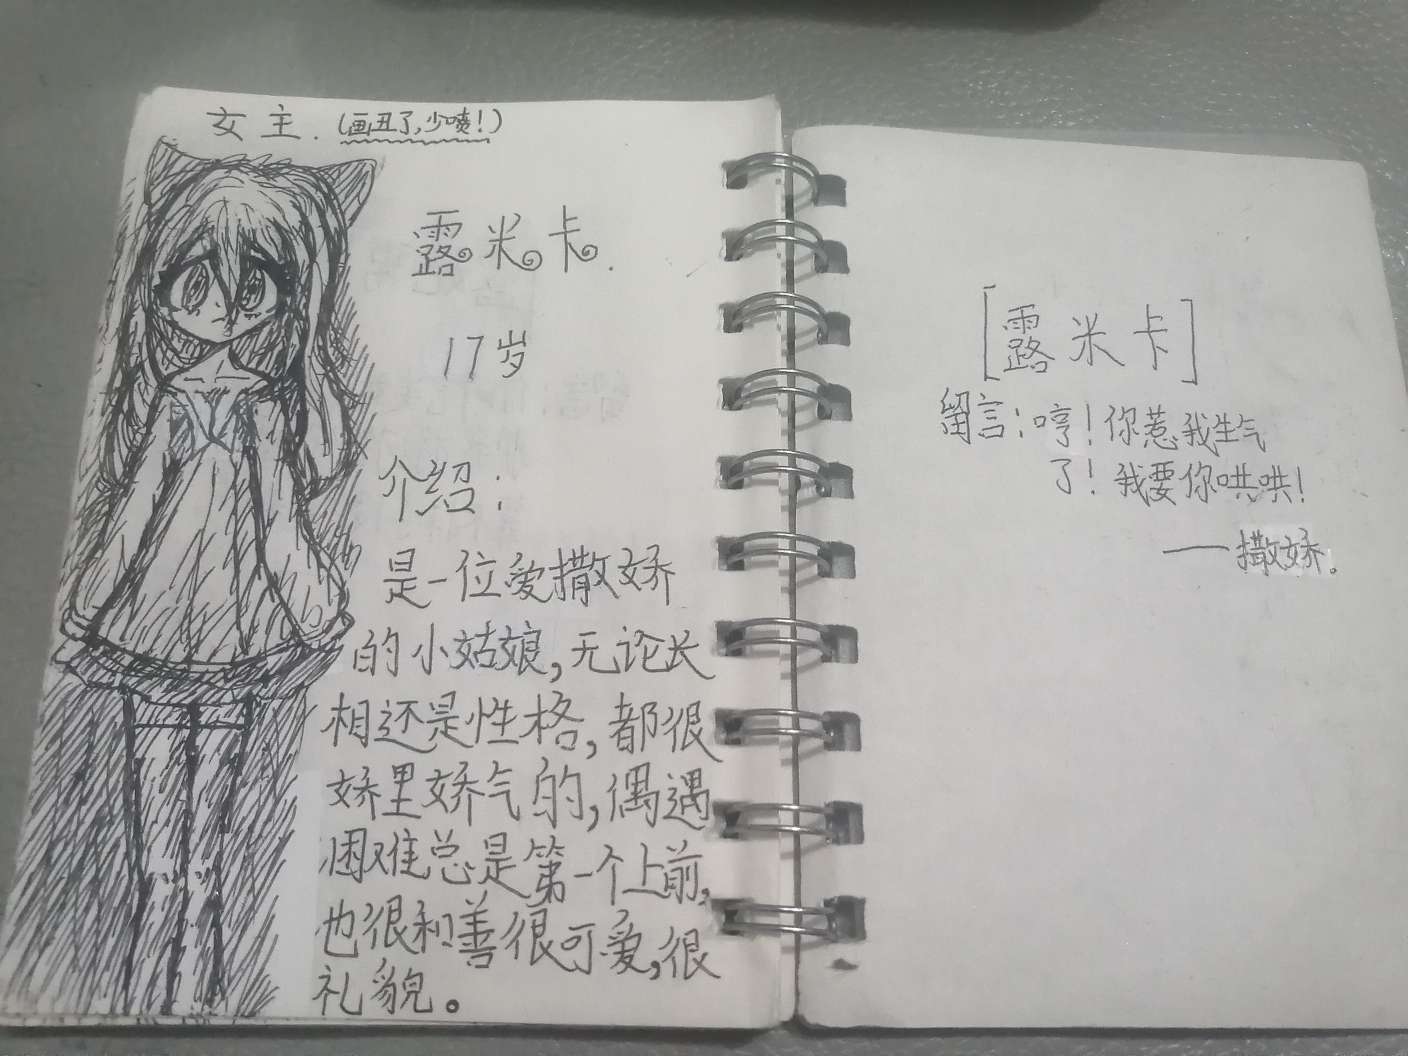 女主.(画丑了,少喷!)
露米卡.
17岁
介绍:
是一位爱撒娇
的小姑娘,无论长
相还是性格,都很
娇里娇气的,偶遇
困难总是第一个上前,
也很和善很可爱,很
礼貌。
[露米卡]
留言:哼!你惹我生气
了!我要你哄哄!
——撒娇。